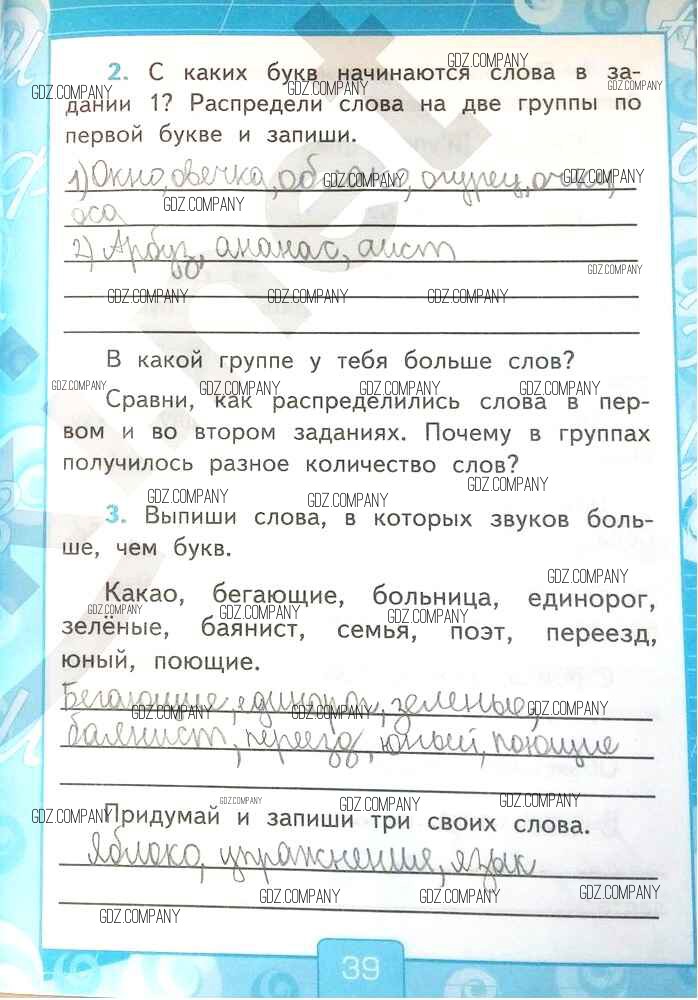 2. С каких букв начинаются слова в за-
дании 1? Распредели слова на две группы по
первой букве и запиши.
1) Окно, овечка, облако, огурец, очки,
оса
2) Арбуз, ананас, аист
В какой группе у тебя больше слов?
Сравни, как распределились слова в пер-
вом и во втором заданиях. Почему в группах
получилось разное количество слов?
3. Выпиши слова, в которых звуков боль-
ше, чем букв.
Какао, бегающие, больница, единорог,
зелёные, баянист, семья, поэт, переезд,
юный, поющие.
Бегающие, единорог, зеленые,
баянист, переезд, юный, поющие
Придумай и запиши три своих слова.
Яблоко, упражнения, язык
39
GDZ.COMPANY